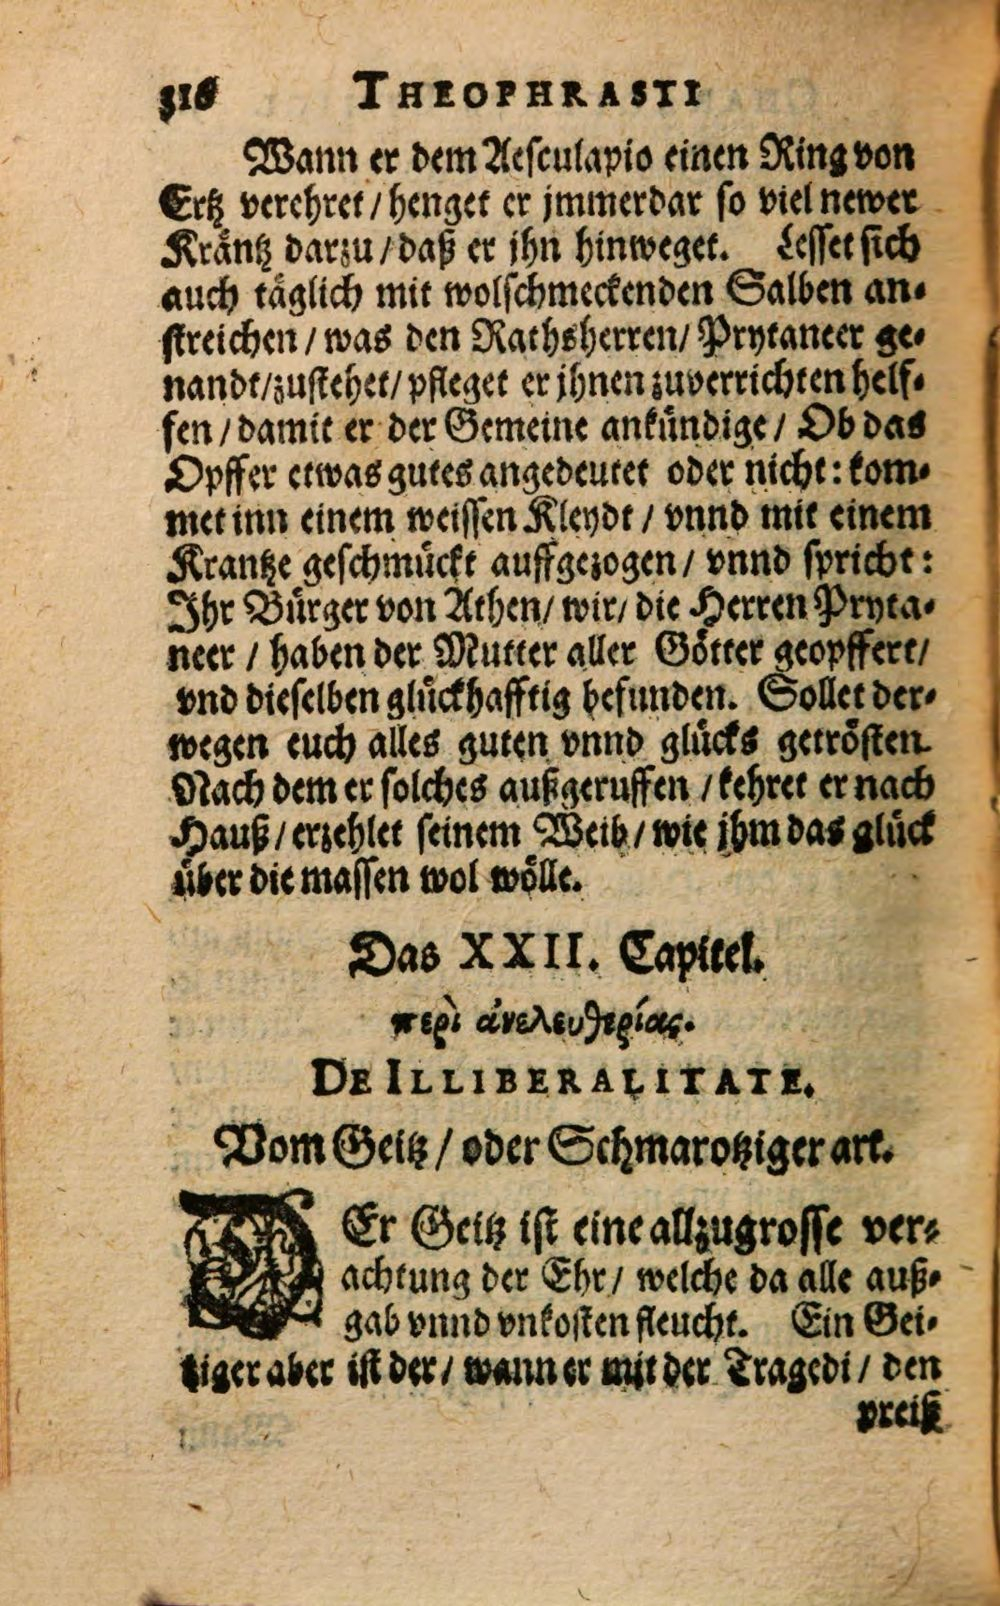 318 THEOPHRASTI
Wann er dem Aesculapio einen Ring von
Ertz verehret / henget er jmmerdar so viel newer
Kräntz darzu / daß er jhn hinweget. Lesset sich
auch täglich mit wolschmeckenden Salben an-
streichen / was den Rathsherren / Prytaneer ge-
nandt / zustehet / pfleget er jhnen zuverrichten helf-
fen / damit er der Gemeine ankündige / Ob das
Opffer etwas gutes angedeutet oder nicht: kom-
met inn einem weissen Kleydt / vnnd mit einem
Krantze geschmückt auffgezogen / vnnd spricht:
Ihr Bürger von Athen / wir / die Herren Pryta-
neer / haben der Mutter aller Götter geopffert /
vnd dieselben glückhafftig befunden. Sollet der-
wegen euch alles guten vnnd glücks getrösten.
Nach dem er solches außgeruffen / kehret er nach
Hauß / erzehlet seinem Weib / wie jhm das glück
über die massen wol wölle.
Das XXII. Capitel.
περὶ ἀνελευθερίας.
DE ILLIBERALITATE.
Vom Geitz / oder Schmarotziger art.
DEr Geitz ist eine allzugrosse ver-
achtung der Ehr / welche da alle auß-
gab vnnd vnkosten fleucht. Ein Gei-
tziger aber ist der / wann er mit der Tragedi / den
preiß